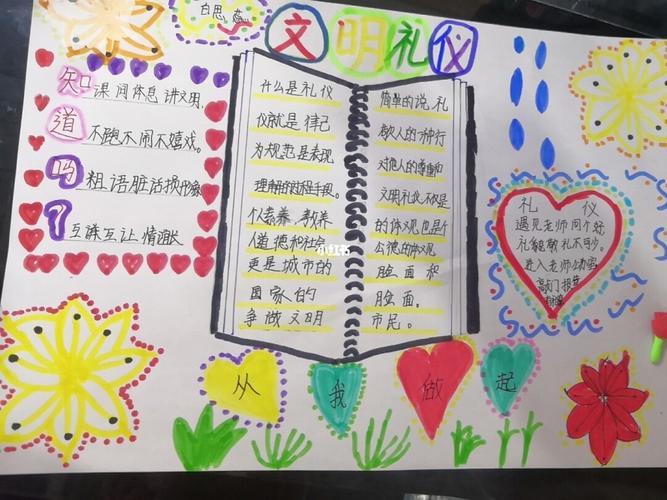 文明礼仪
知 课间休息讲文明,
道 不跑不闹不嬉戏。
吗 粗语脏话损形象
? 互谅互让情谊长
什么是礼仪
仪就是律己
为规范是表现
理解的过程手段。
个人素养、教养
人道德和社会
更是城市的
国家的
争做文明
简单的说,礼
敬人的一种行
对他人的尊重和
文明礼仪不仅是
的体现也是个
公德的体现
脸面和
脸面.
市民。
小红书
礼仪
遇见老师问个好
礼貌敬礼不可少。
进入老师办公室
敲门报告
从我做起